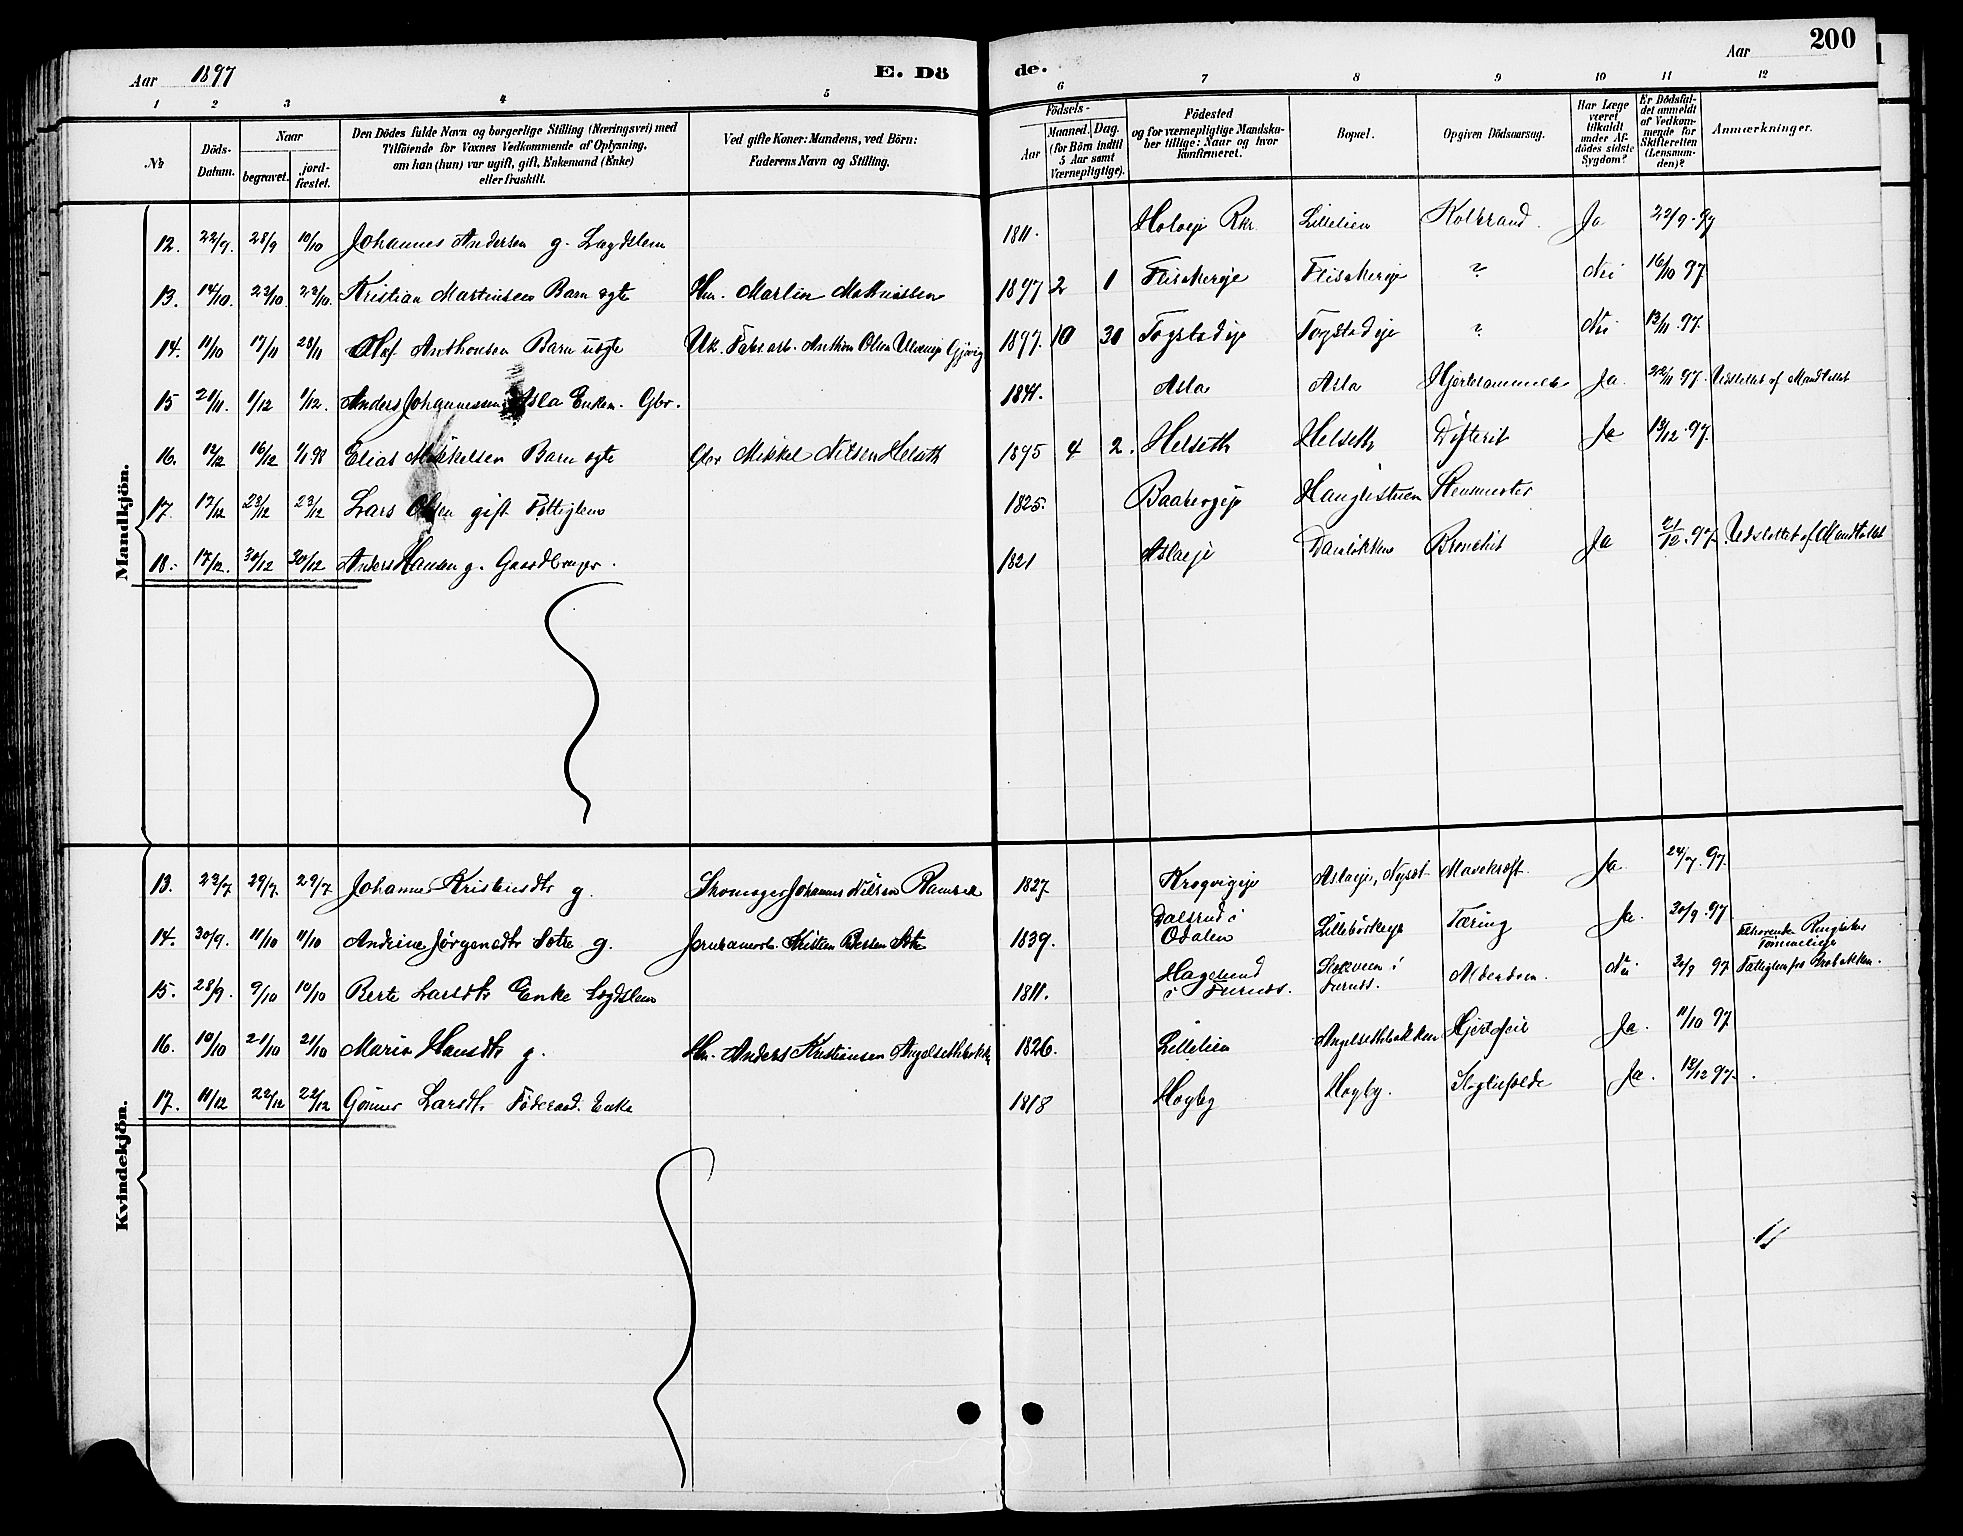 Aar 1897 E. Dö
de. Aar 200
1 2 3 4 5 6 7 8 9 10 11 12
No Döds-Datum. Naar begravet. jord-fæstet. Den Dödes fulde Navn og borgerlige Stilling (Næringsvei) med Tilföiende for Voxnes Vedkommende af Oplysning, om han (hun) var ugift, gift, Enkemand (Enke) eller fraskilt. Ved gifte Koner: Mandens, ved Börn: Faderens Navn og Stilling. Födsels- Aar Maaned. Dag. (for Börn indtil 5 Aar samt Værnepligtige). Födested og for værnepligtige Mandskaber tillige: Naar og hvor konfirmeret. Bopæl. Opgiven Dödsaarsag. Har Læge været tilkaldt under Afdödes sidste Sygdom? Er Dödsfaldet anmeldt af Vedkommende for Skifteretten (Lensmanden)? Anmærkninger.
Mandkjön.
12. 22/9. 28/9 10/10 Johannes Andersen g. Lægdslem 1811. Holseje Rkr. Lillelien Koldbrand. Ja 22/9. 97
13. 14/10. 23/10. 23/10. Kristian Martinsen Barn ægte Hm. Martin Mathiassen 1897 2 1 Flisakereje Flisakereje ? Nei 16/10 97
14. 11/10 17/11 28/11 Olaf Anthonsen Barn uægte Uk. Fabr.arb. Anthon Olsen Gjøvig 1897. 10 30 Togstadeje Togstadeje ? Nei 13/11. 97.
15 20/11. 1/12 1/12. Anders Johannessen Asla Enkem. Gbr. 1841. Asla Asla Hjertelammelse Ja. 22/11 97. Udslettet af Mandtallet
16. 12/12 16/12 1/1 98 Elias Mikkelsen Barn ægte Gbr Mikkel Nilsen Helseth 1895 4 2. Helseth Helseth Difterit Ja 13/12. 97.
17. 17/12 23/12 23/12 Lars Olsen gift Fattiglem 1825. Baabergeje Hauglistuen
18. 17/12. 30/12 30/12 Anders Hansen g. Gaardbruger. 1821 Aslaeje Damløkken Bronchit Ja 21/12. 97. Udslettet af Mandtallet
Kvindekjön.
13. 23/7 29/7. 29/7 Johanne Kristiansdtr g. Skomager Johannes Nilsen Rambæk 1827 Krogvigeje Aslaeje, Nyset Mavekræft. Ja 24/7. 97.
14. 30/9. 11/10 11/10 Andrine Jørgensdtr Sotre g. Jernbanearb. Kristian Sotre 1839. Dalsrud i Odalen Lillebørkeje Tæring Ja. 30/9. 97 Tilhørende Ringsaker
15. 28/9. 9/10 10/10 Berte Larsdtr Enke Lægdslem 1811. Hagelund i Furnes. i Furnes. Alderdom. Nei 97 Fattiglem fra Brobakken.
16. 10/10 21/10 21/10 Maria Hansdtr g. Hm. Anders Kristiansen Angelsethbakke 1826. Lillelien Angelsethbakken Hjertefeil Ja. 11/10 97.
17. 11/12 22/12 22/12 Gønner Larsdtr Føderaad. Enke 1818 Hogby Hogby. Ja. 13/12 97.